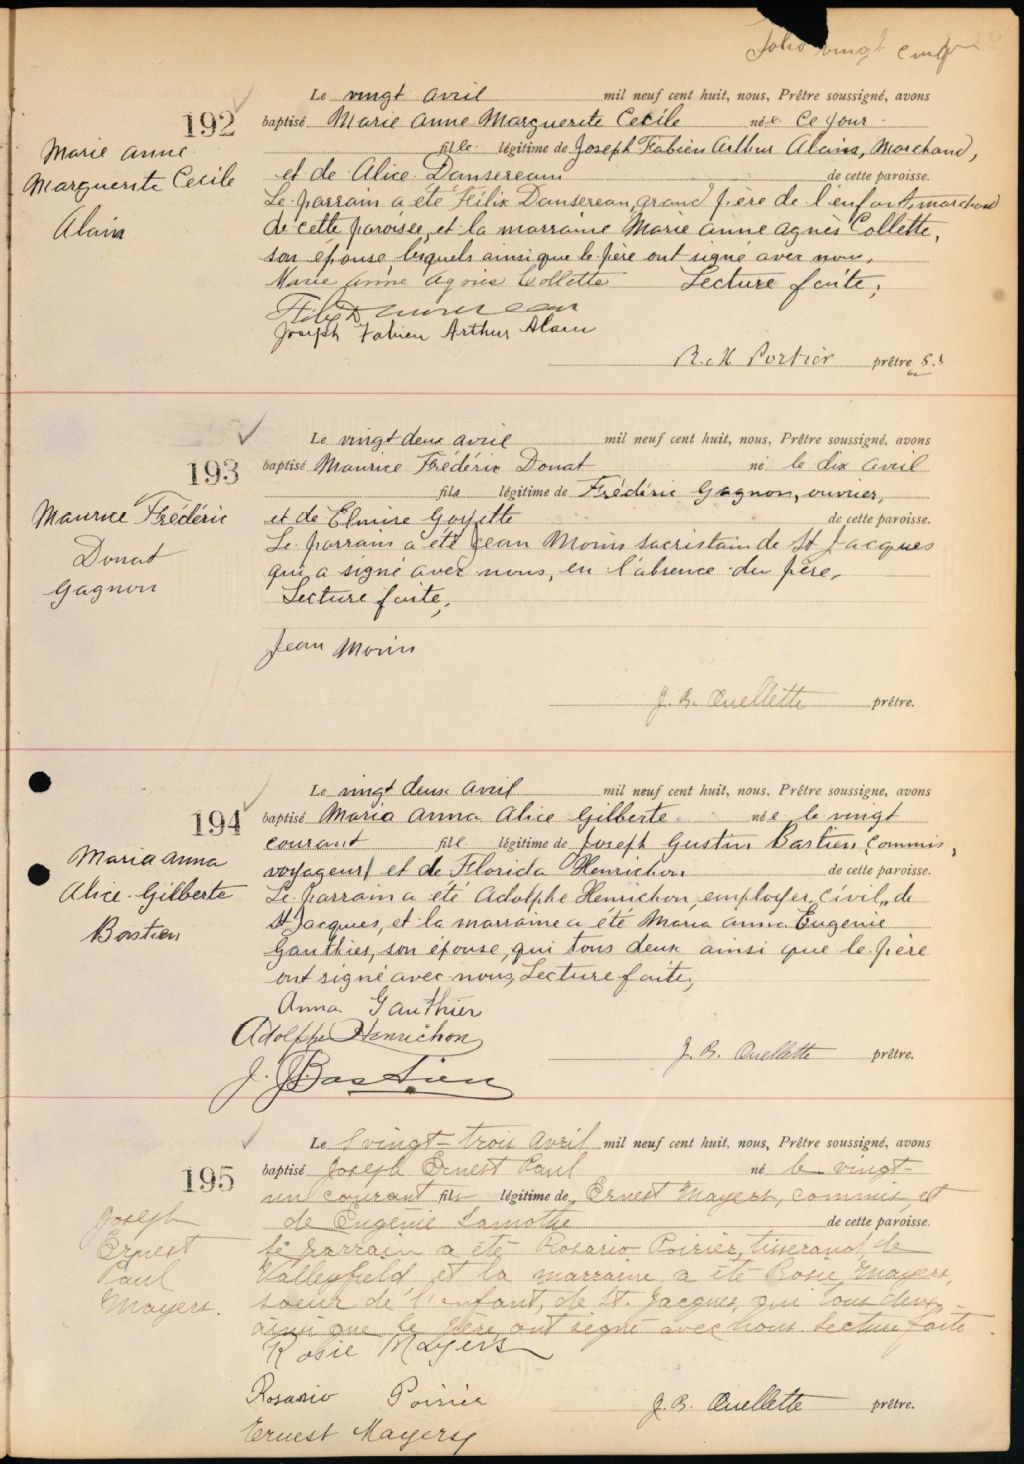 Folio vingt cinq
192
Marie Anne
Marguerite Cecile
Alain
Le vingt avril mil neuf cent huit, nous, Prêtre soussigné, avons
baptisé Marie Anne Marguerite Cecile née ce jour
fille légitime de Joseph Fabien Arthur Alain, Marchand,
et de Alice Dansereau de cette paroisse.
Le parrain a été Félix Dansereau, grand père de l'enfant, marchand
de cette paroisse, et la marraine Marie Anne Agnès Collette,
son épouse lesquels ainsi que le père ont signé avec nous.
Marie Anne Agnès Collette Lecture faite,
Félix Dansereau
Joseph Fabien Arthur Alain
R. H. Portier prêtre
193
Maurice Frédéric
Donat
Gagnon
Le vingt deux avril mil neuf cent huit, nous, Prêtre soussigné, avons
baptisé Maurice Frédéric Donat né le dix avril
fils légitime de Frédéric Gagnon, ouvrier,
et de Elmire Goyette de cette paroisse.
Le parrain a été Jean Morin sacristain de St Jacques
qui a signé avec nous, en l'absence du père,
Lecture faite,
Jean Morin
J. B. Ouellette prêtre.
194
Maria Anna
Alice Gilberte
Bastien
Le vingt deux avril mil neuf cent huit, nous, Prêtre soussigne, avons
baptisé Maria Anna Alice Gilberte née le vingt
courant fille légitime de Joseph Gustin Bastien, commis
voyageur, et de Florida Henrichon de cette paroisse.
Le parrain a été Adolphe Henrichon, employer civil, de
St Jacques, et la marraine a été Maria Anna Eugenie
Gauthier, son épouse, qui tous deux ainsi que le père
ont signé avec nous, Lecture faite,
Anna Gauthier
Adolphe Henrichon
J. B. Ouellette prêtre.
J. J. Bastien
195
Joseph
Ernest
Paul
Mayers.
Le vingt-trois avril mil neuf cent huit, nous, Prêtre soussigné, avons
baptisé Joseph Ernest Paul né le vingt-
un courant fils légitime de Ernest Mayers, commis, et
de Eugénie Lamothe de cette paroisse.
Le parrain a été Rosario Poirier, tisserand, de
Valleyfield et la marraine a été Rosie Mayers,
soeur de l'enfant, de St. Jacques, qui tous deux,
ainsi que le père, ont signé avec nous. Lecture faite.
Rosie Mayers
Rosario Poirier
J. B. Ouellette prêtre.
Ernest Mayers